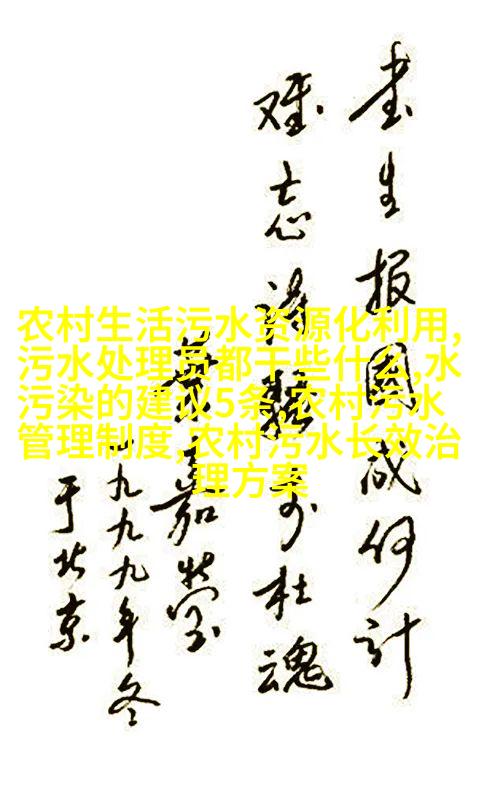 書生报國成何计
难忘诗骚李杜魂
葉嘉莹
一九九九年冬
于北京
农村生活污水资源化利用,
污水处理员都干些什么,水
污染的建议5条,农村污水
管理制度,农村污水长效治
理方案